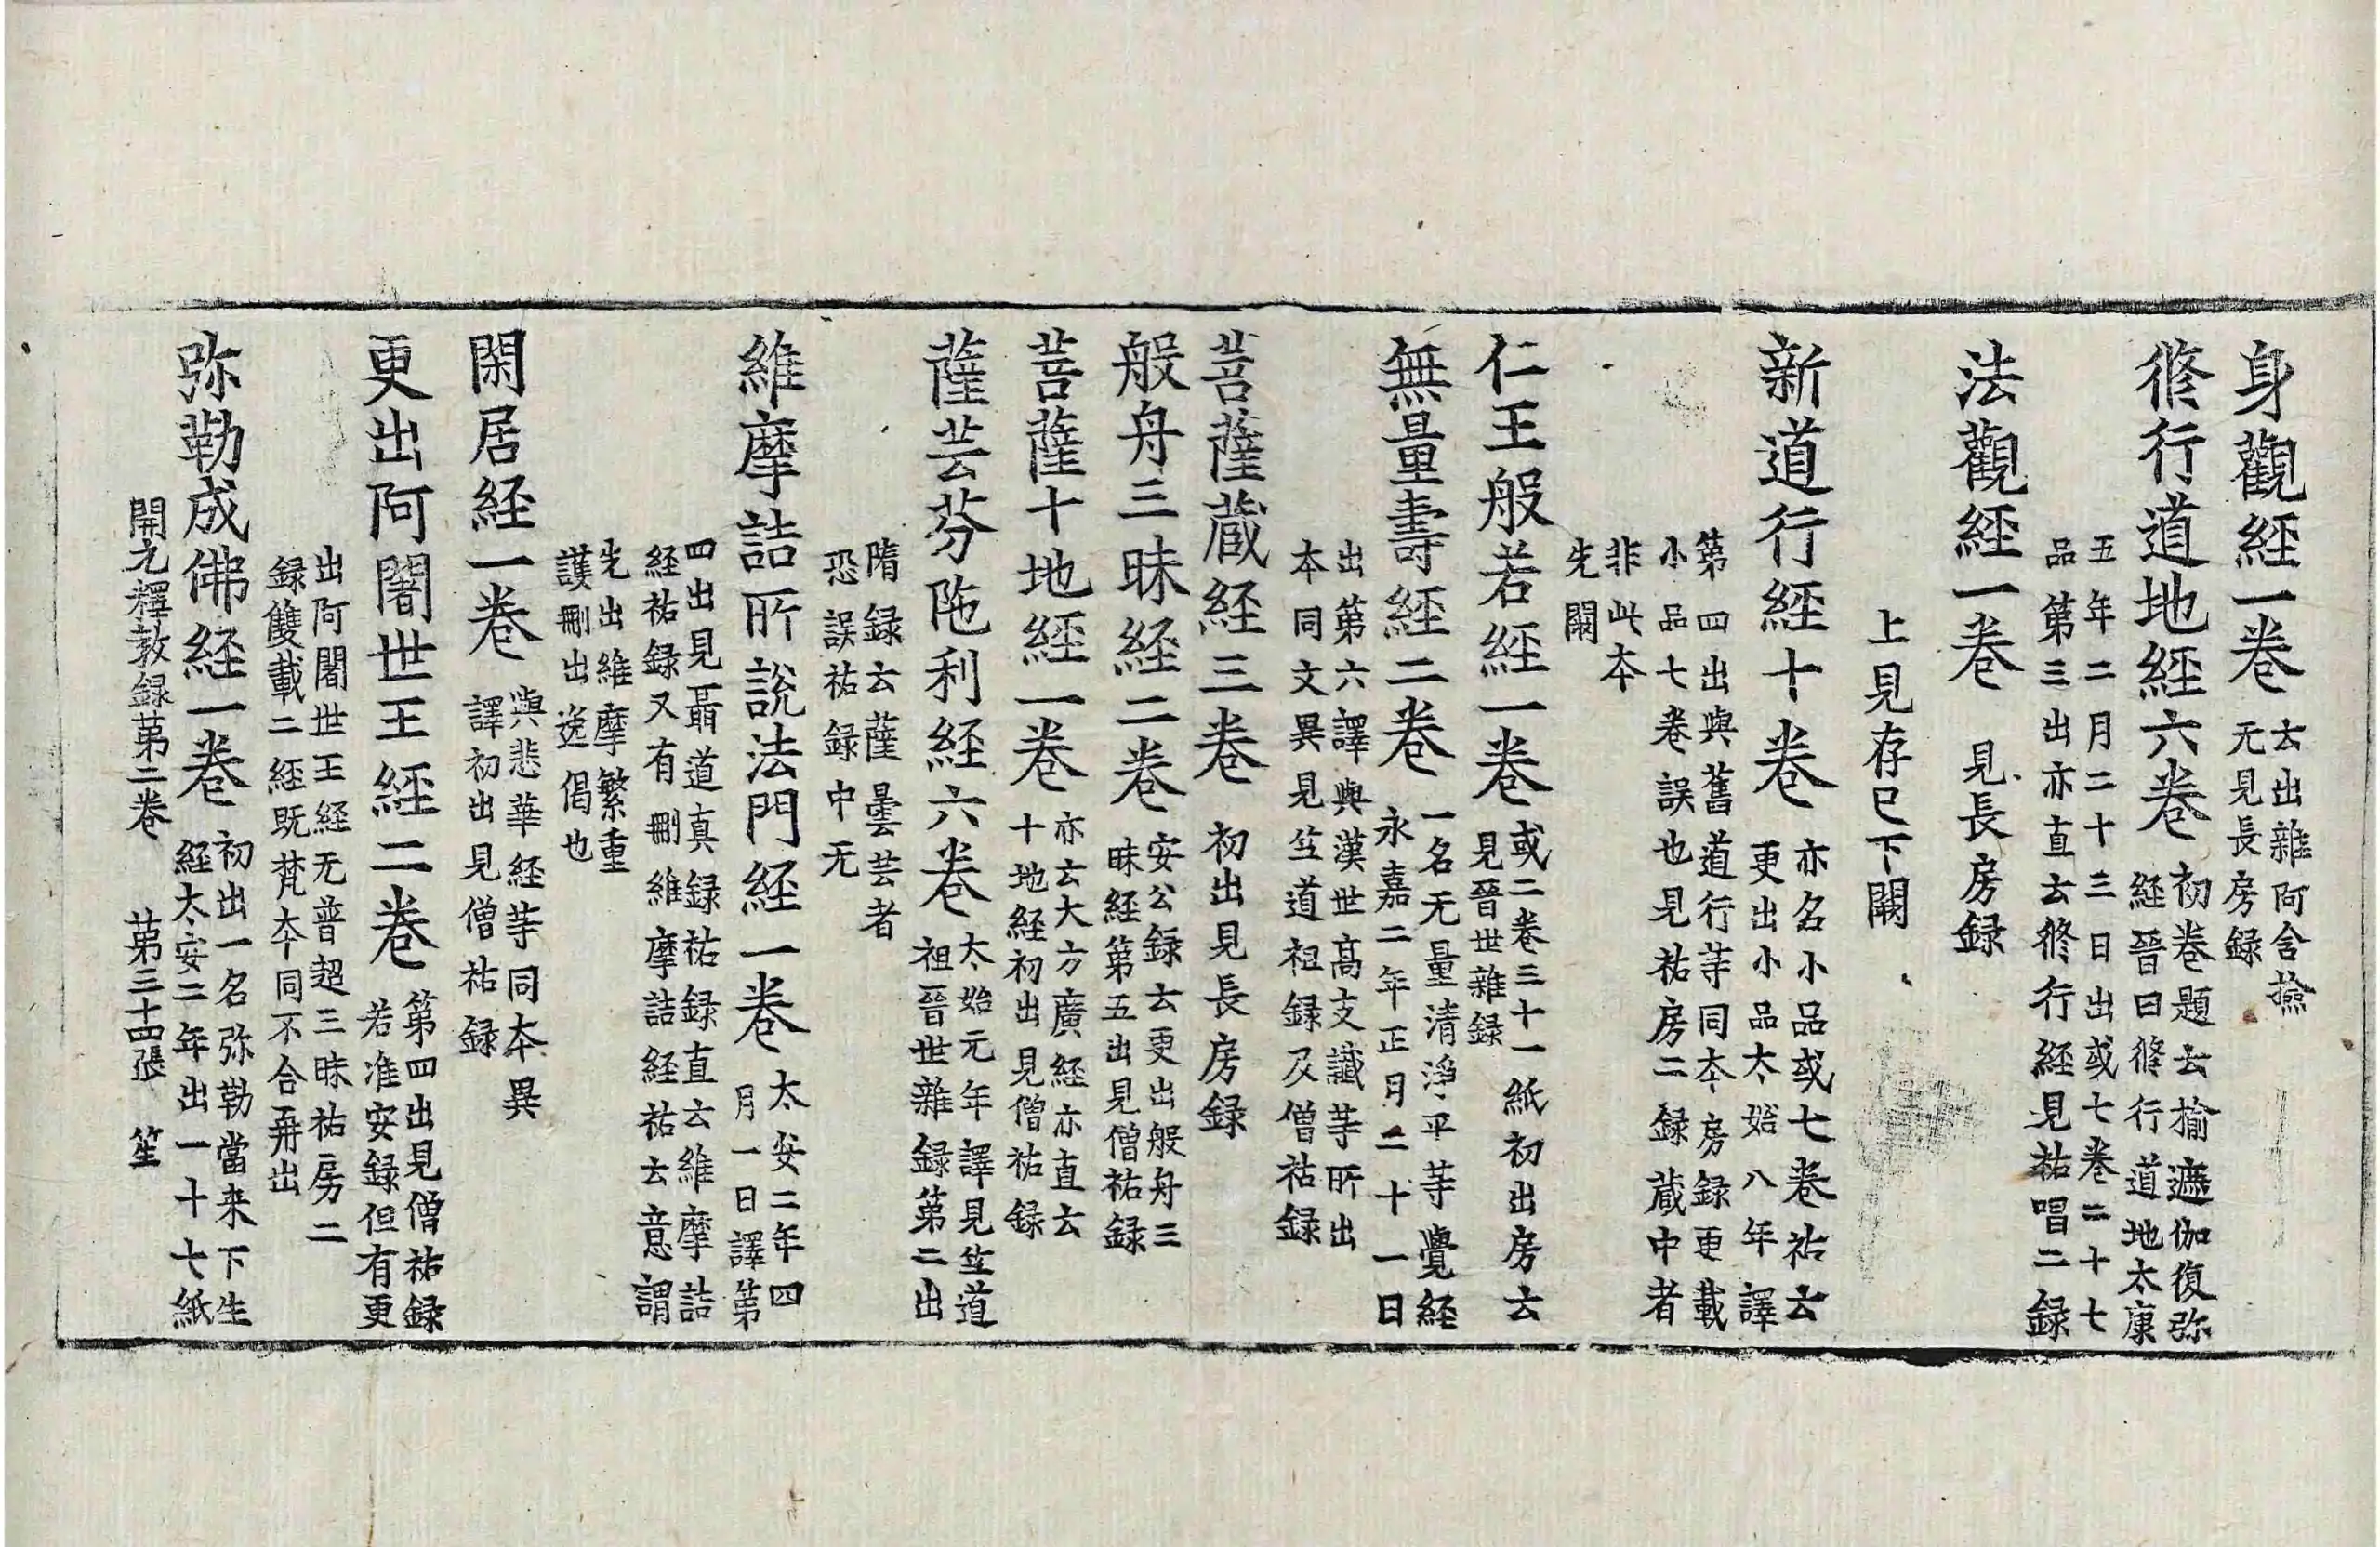 身觀經一卷 云出雜阿含撿
无見長房録
脩行道地經六卷 初卷題云揄遮伽復弥
経晉曰脩行道地太康
五年二月二十三日出或七卷二十七
品第三出亦直云脩行経見祐唱二録
法觀經一卷 見長房録
上見存已下闕
新道行經十卷 亦名小品或七卷祐云
更出小品太始八年譯
第四出與舊道行等同夲房録更載
小品七卷誤也見祐房二録蔵中者
非此夲
先闕
仁王般若經一卷 或二卷三十一紙初出房云
見晉世雜録
無量壽経二卷 一名无量清淨平等覺経
永嘉二年正月二十一日
出第六譯與漢世髙支讖等所出
本同文異見竺道祖録及僧祐録
菩薩蔵経三卷 初出見長房録
般舟三昧経二卷 安公録云更出般舟三
昧経第五出見僧祐録
菩薩十地經一卷 亦云大方廣経亦直云
十地経初出見僧祐録
薩芸芬陁利経六卷 太始元年譯見竺道
祖晉世雜録第二出
隋録云薩曇芸者
恐誤祐録中无
維摩詰所說法門経一卷 太安二年四
月一日譯第
四出見聶道真録祐録直云維摩詰
経祐録又有刪維摩詰経祐云意謂
先出維摩繁重
護刪出逸偈也
閑居経一卷 與悲華経等同夲異
譯初出見僧祐録
更出阿闍世王經二卷 第四出見僧祐録
若准安録但有更
出阿闍世王経无普超三昧祐房二
録雙載二経既梵夲同不合再出
弥勒成佛経一卷 初出一名弥勒當来下生
経太安二年出一十七紙
開元釋教録第二卷 第三十四張 笙